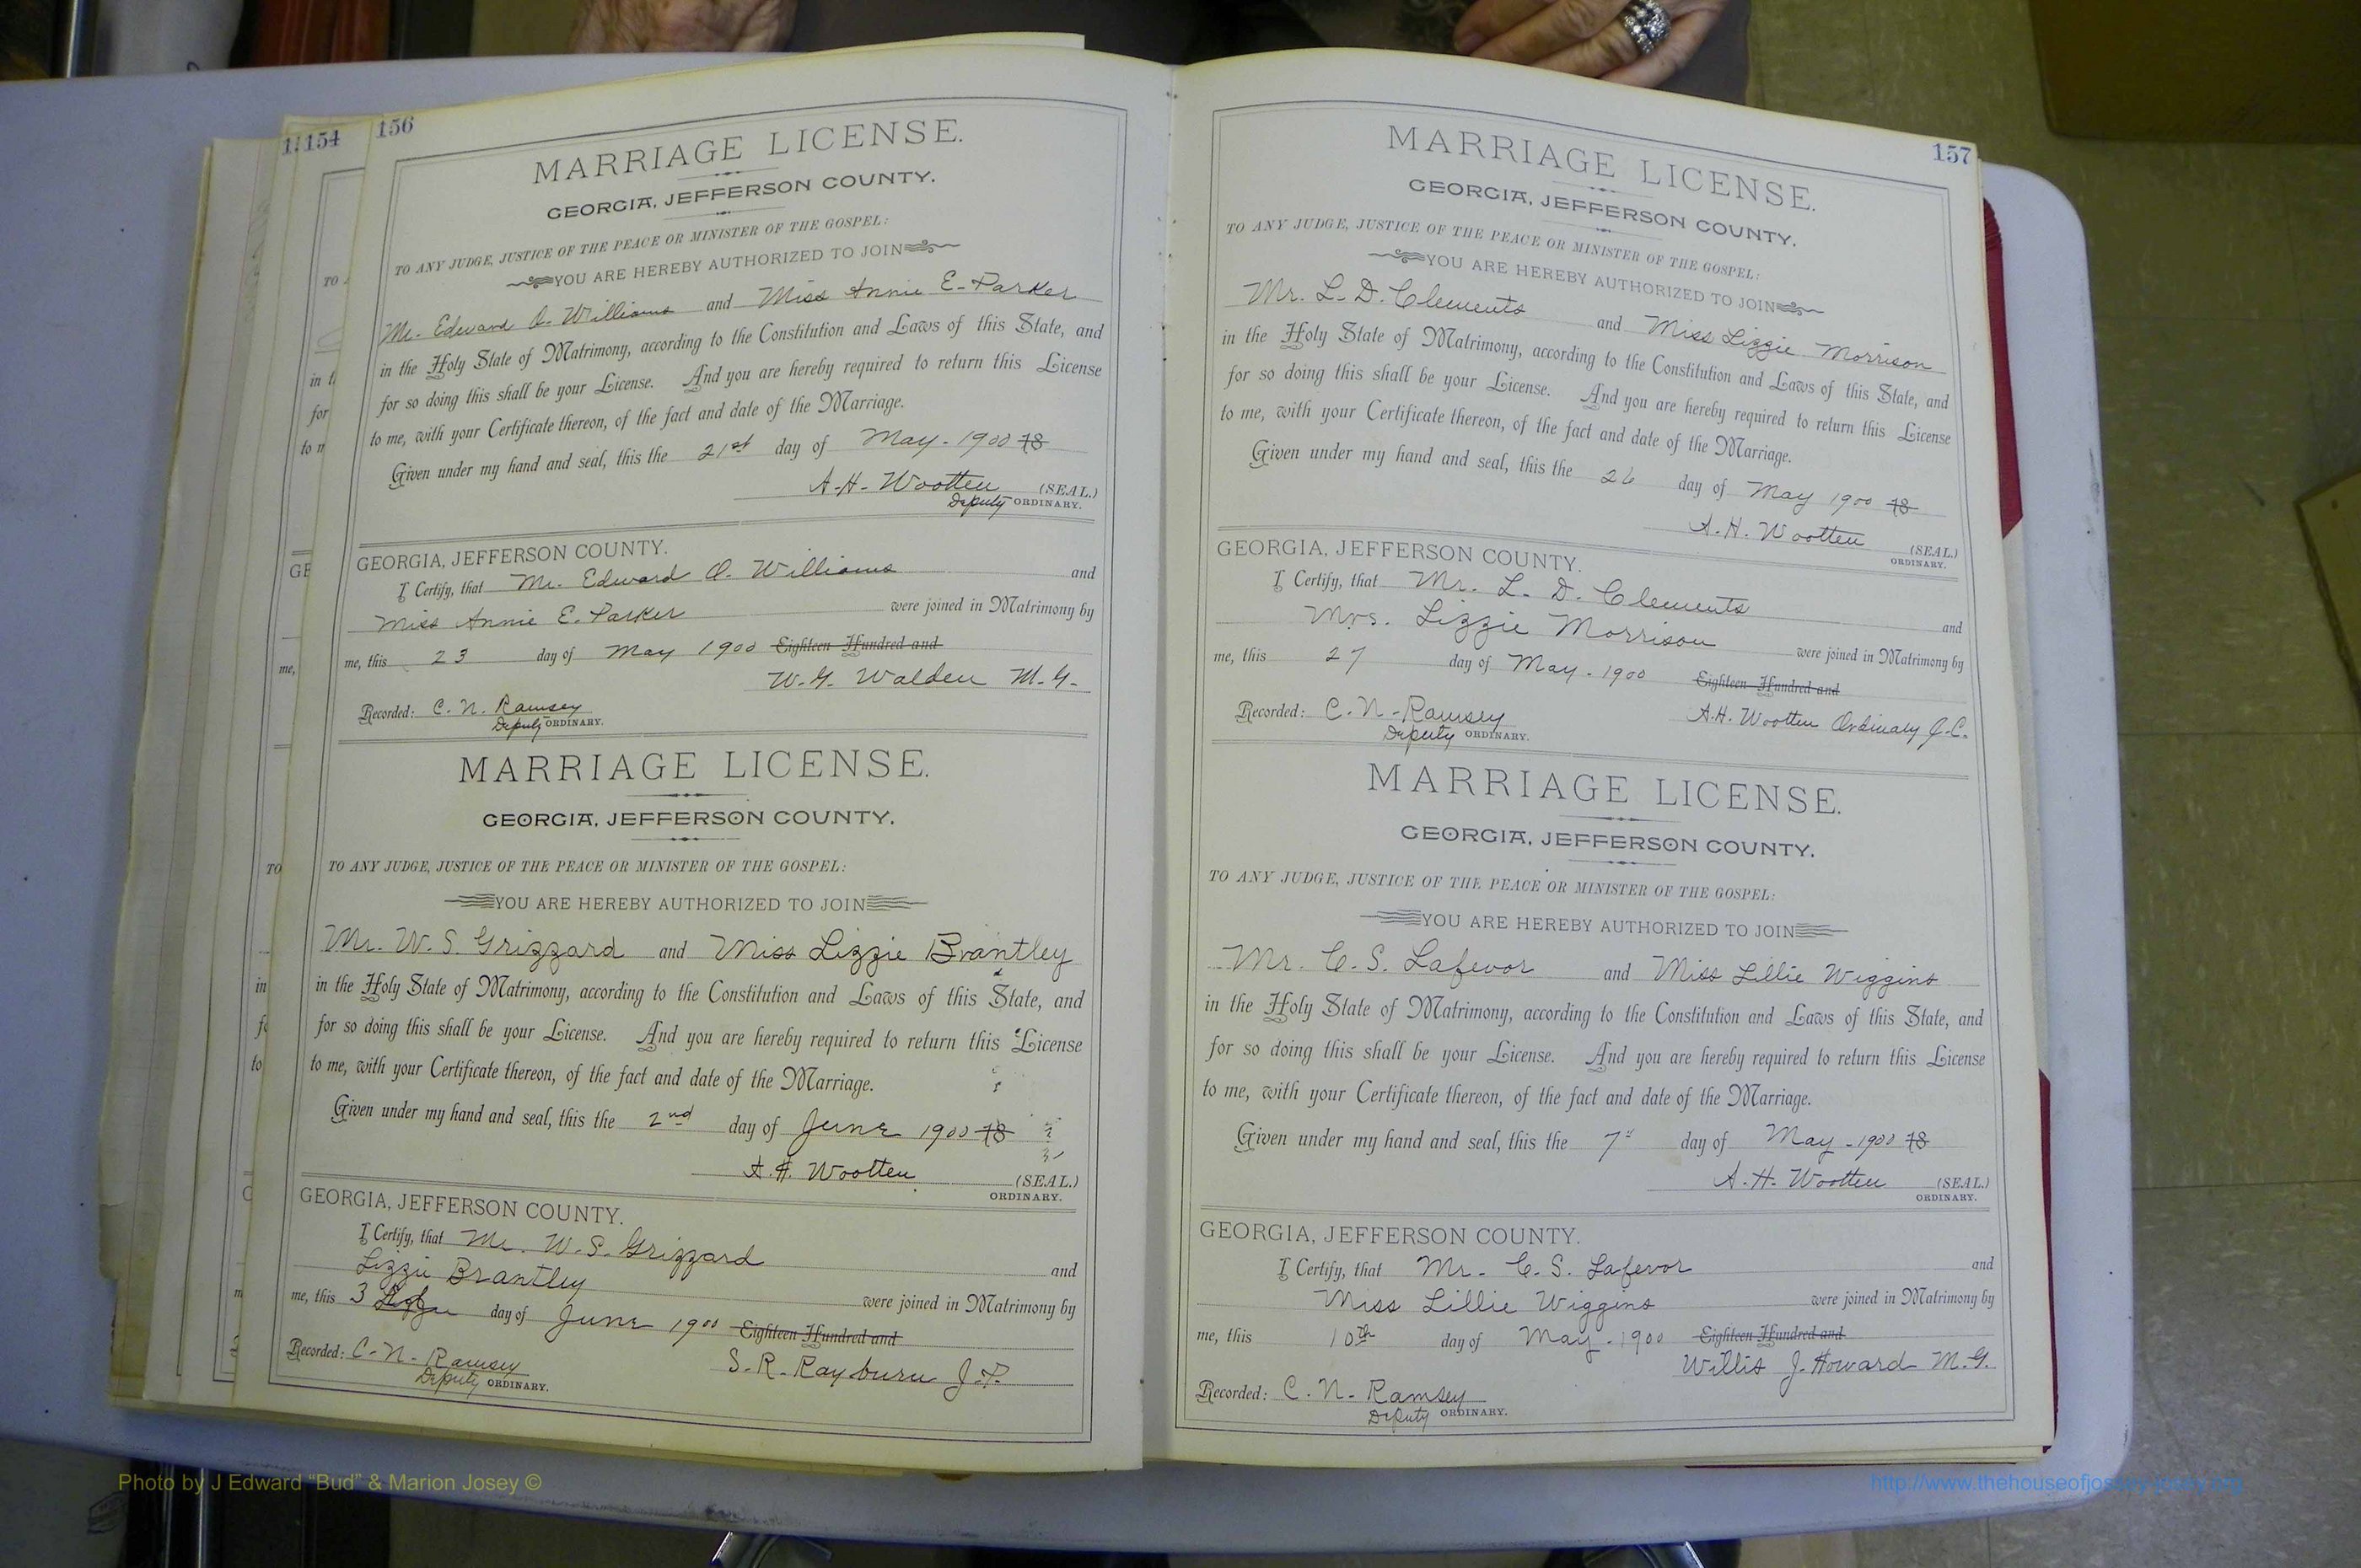 1
154
156
MARRIAGE LICENSE.
GEORGIA, JEFFERSON COUNTY.
TO ANY JUDGE, JUSTICE OF THE PEACE OR MINISTER OF THE GOSPEL:
YOU ARE HEREBY AUTHORIZED TO JOIN
Mr. Edward O. Williams and Miss Annie E. Parker
in the Holy State of Matrimony, according to the Constitution and Laws of this State, and
for so doing this shall be your License. And you are hereby required to return this License
to me, with your Certificate thereon, of the fact and date of the Marriage.
Given under my hand and seal, this the 21st day of May - 1900 18
A. H. Wootten (SEAL.)
Deputy ORDINARY.
GEORGIA, JEFFERSON COUNTY.
I Certify, that Mr. Edward O. Williams and
Miss Annie E. Parker were joined in Matrimony by
me, this 23 day of May 1900 Eighteen Hundred and
W. G. Walden M. G.
Recorded: C. N. Ramsey
Deputy ORDINARY.
MARRIAGE LICENSE.
GEORGIA, JEFFERSON COUNTY.
TO ANY JUDGE, JUSTICE OF THE PEACE OR MINISTER OF THE GOSPEL:
YOU ARE HEREBY AUTHORIZED TO JOIN
Mr. W. S. Grizzard and Miss Lizzie Brantley
in the Holy State of Matrimony, according to the Constitution and Laws of this State, and
for so doing this shall be your License. And you are hereby required to return this License
to me, with your Certificate thereon, of the fact and date of the Marriage.
Given under my hand and seal, this the 2nd day of June 1900 18
A. H. Wootten (SEAL.)
ORDINARY.
GEORGIA, JEFFERSON COUNTY.
I Certify, that Mr. W. S. Grizzard and
Lizzie Brantley were joined in Matrimony by
me, this 3 day of June 1900 Eighteen Hundred and
S. R. Rayburn J. P.
Recorded: C. N. Ramsey
Deputy ORDINARY.
157
MARRIAGE LICENSE.
GEORGIA, JEFFERSON COUNTY.
TO ANY JUDGE, JUSTICE OF THE PEACE OR MINISTER OF THE GOSPEL:
YOU ARE HEREBY AUTHORIZED TO JOIN
Mr. L. D. Clements and Miss Lizzie Morrison
in the Holy State of Matrimony, according to the Constitution and Laws of this State, and
for so doing this shall be your License. And you are hereby required to return this License
to me, with your Certificate thereon, of the fact and date of the Marriage.
Given under my hand and seal, this the 26 day of May 1900 18
A. H. Wootten (SEAL.)
ORDINARY.
GEORGIA, JEFFERSON COUNTY.
I Certify, that Mr. L. D. Clements and
Mrs. Lizzie Morrison were joined in Matrimony by
me, this 27 day of May - 1900 Eighteen Hundred and
A. H. Wootten Ordinary J. C.
Recorded: C. N. Ramsey
Deputy ORDINARY.
MARRIAGE LICENSE.
GEORGIA, JEFFERSON COUNTY.
TO ANY JUDGE, JUSTICE OF THE PEACE OR MINISTER OF THE GOSPEL:
YOU ARE HEREBY AUTHORIZED TO JOIN
Mr. C. S. Lafevor and Miss Lillie Wiggins
in the Holy State of Matrimony, according to the Constitution and Laws of this State, and
for so doing this shall be your License. And you are hereby required to return this License
to me, with your Certificate thereon, of the fact and date of the Marriage.
Given under my hand and seal, this the 7" day of May - 1900 18
A. H. Wootten (SEAL.)
ORDINARY.
GEORGIA, JEFFERSON COUNTY.
I Certify, that Mr. C. S. Lafevor and
Miss Lillie Wiggins were joined in Matrimony by
me, this 10th day of May - 1900 Eighteen Hundred and
Willis J. Howard M. G.
Recorded: C. N. Ramsey
Deputy ORDINARY.
Photo by J Edward “Bud” & Marion Josey ©